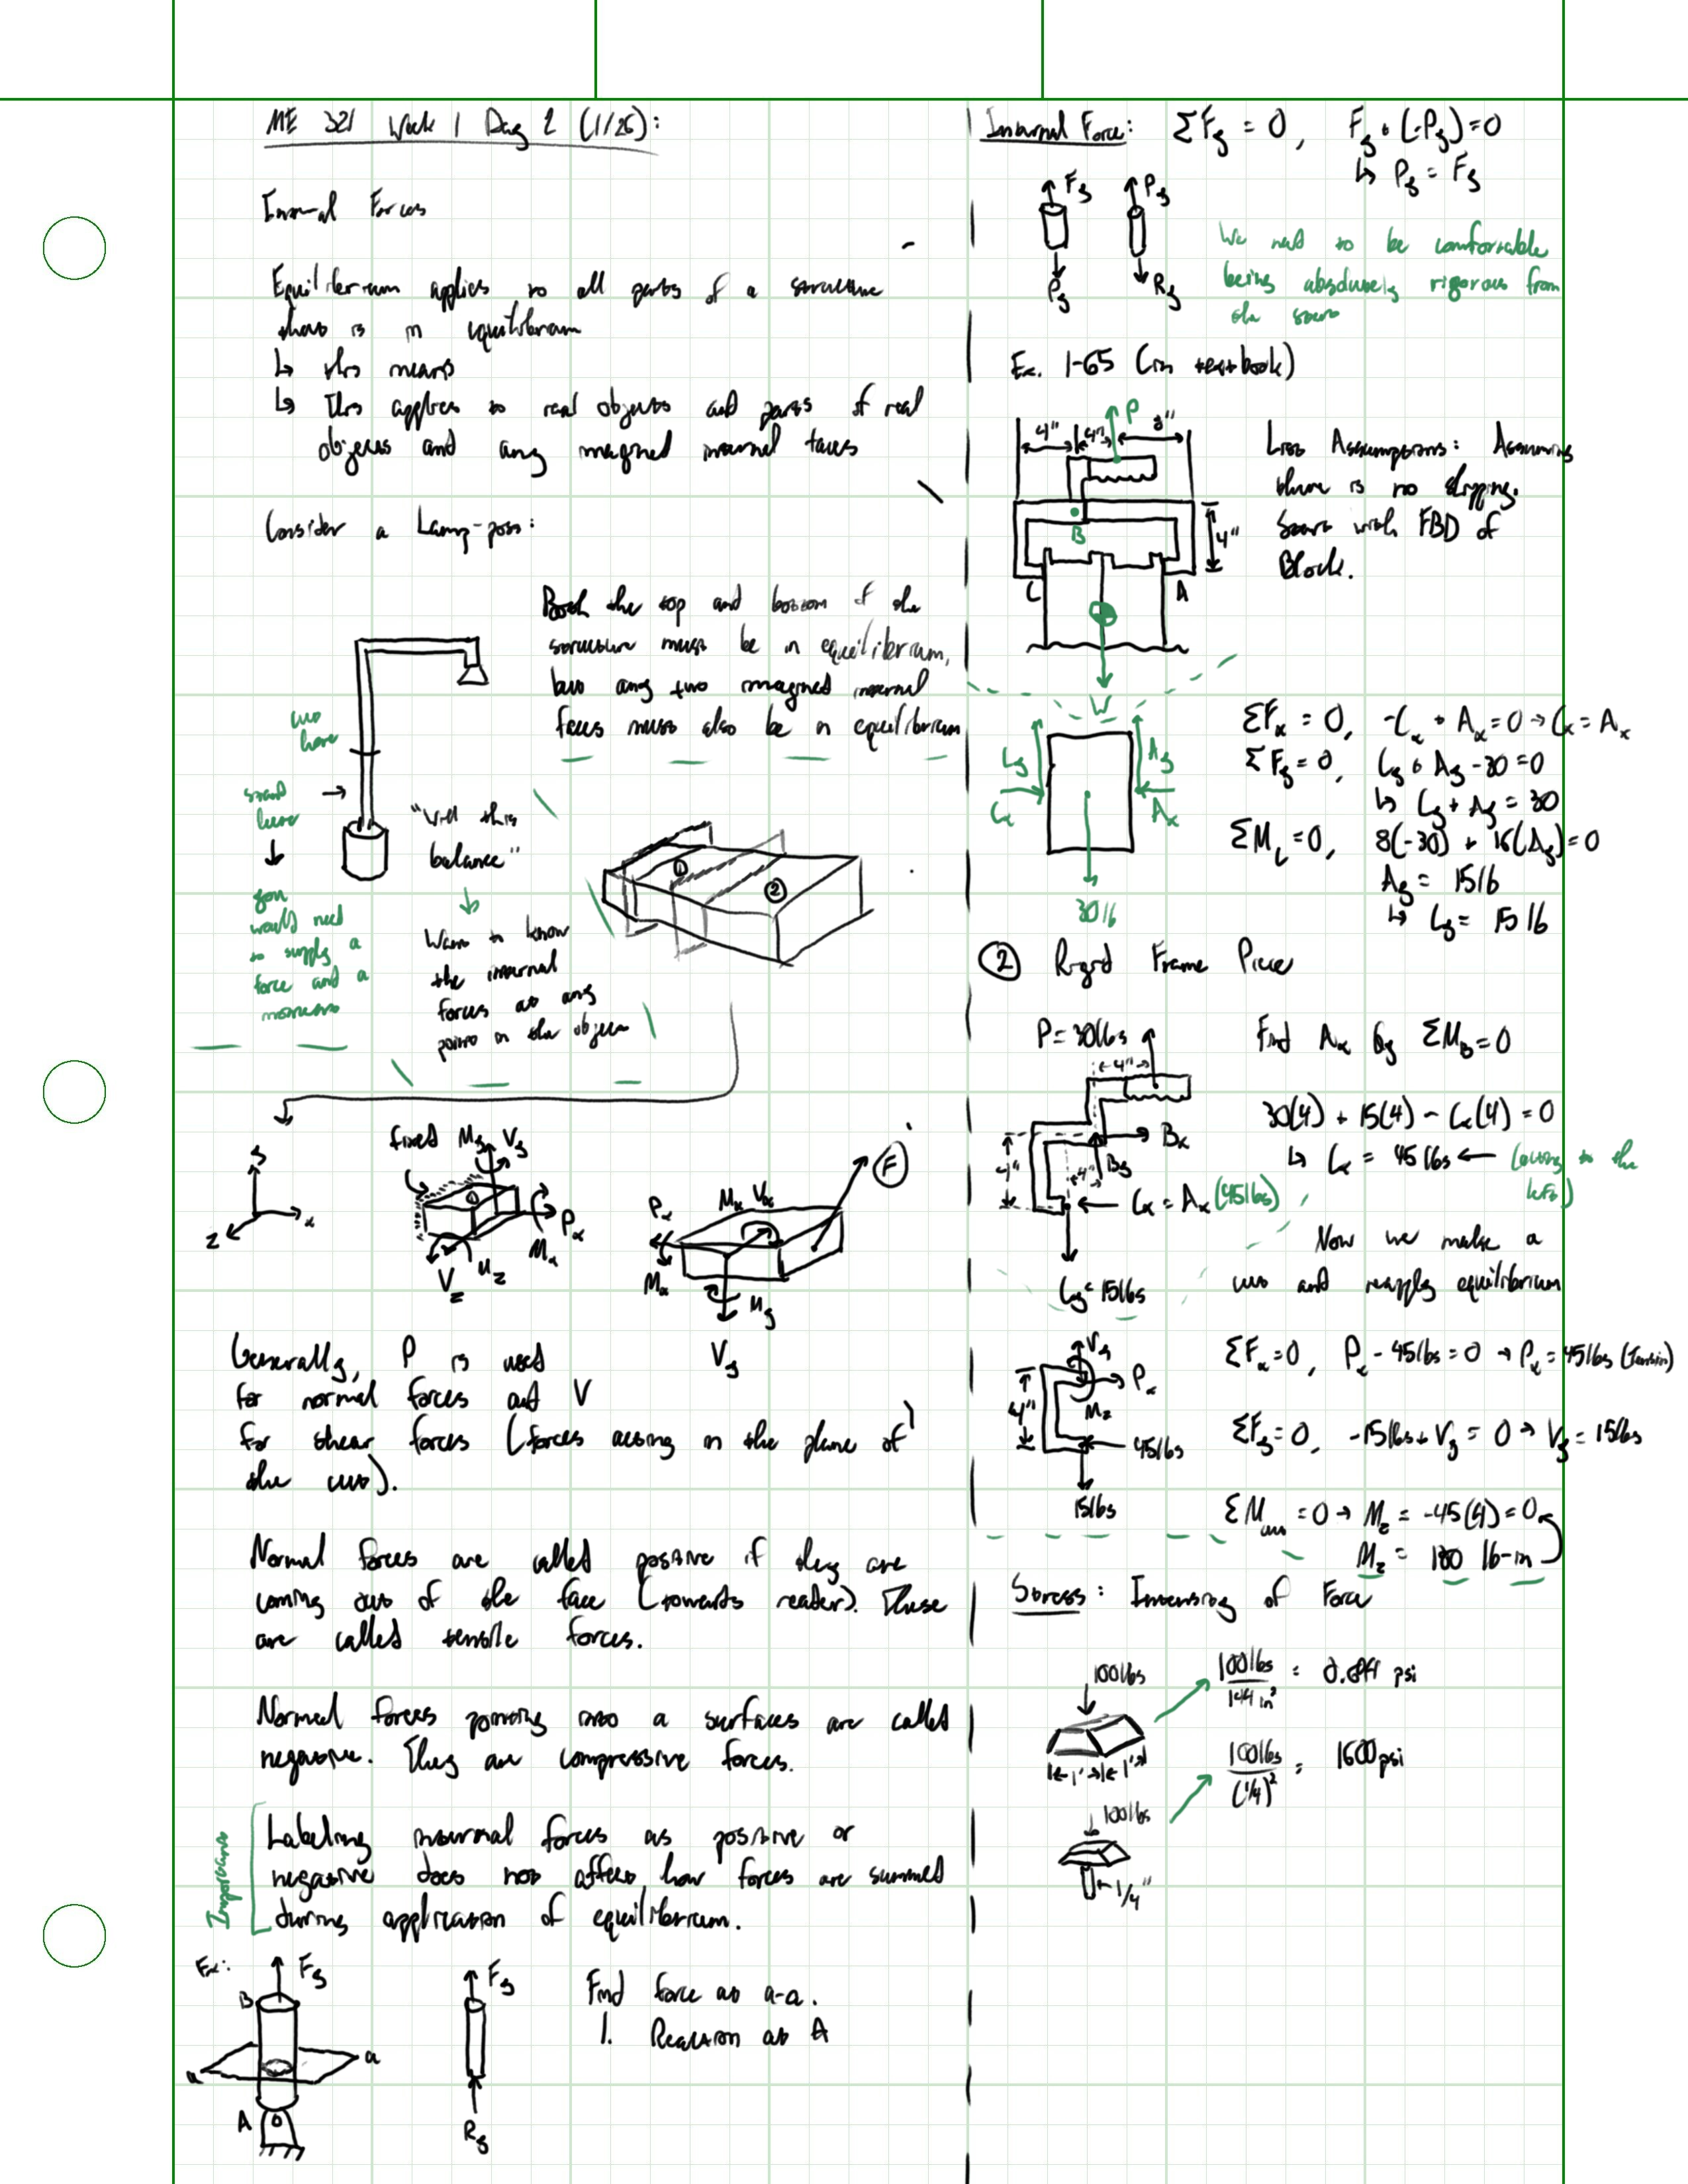 ME 321 Week 1 Day 2 (1/26):
Internal Forces
Equilibrium applies to all parts of a structure
that is in equilibrium
↳ this means
↳ This applies to real objects and parts of real
objects and any imagined internal faces
Consider a Lamp-post:
Both the top and bottom of the
structure must be in equilibrium,
but any two imagined internal
faces must also be in equilibrium
cut
here
stand
here
↓
you
would need
to supply a
force and a
moment
"Will this
balance"
Want to know
the internal
forces at any
point in the object
① ②
y
x
z
fixed
My Vy
①
Px
Mx
Mz
Vz
Px
Mx
Mz Vz
F
My
Vy
Generally, P is used
for normal forces and V
for shear forces (forces acting in the plane of
the cut).
Normal forces are called positive if they are
coming out of the face (towards reader). These
are called tensile forces.
Normal forces pointing into a surfaces are called
negative. They are compressive forces.
Important
Labeling internal forces as positive or
negative does not affect how forces are summed
during application of equilibrium.
Ex:
Fy
B
a
a
A
Fy
Ry
Find force at a-a.
1. Reaction at A
Internal Force: ΣFy = 0, Fy + (-Py) = 0
↳ Py = Fy
Fy Py
Py Ry
We need to be comfortable
being absolutely rigorous from
the start
Ex. 1-65 (in textbook)
P
4" 4" 8"
B
4"
C A
W
List Assumptions: Assuming
there is no slipping.
Start with FBD of
Block.
Cy Ay
Cx Ax
30 lb
ΣFx = 0, -Cx + Ax = 0 → Cx = Ax
ΣFy = 0, Cy + Ay - 30 = 0
↳ Cy + Ay = 30
ΣMc = 0, 8(-30) + 16(Ay) = 0
Ay = 15 lb
↳ Cy = 15 lb
② Rigid Frame Piece
P = 30 lbs
4"
Bx
By
4"
4"
Cx = Ax (45 lbs)
Cy = 15 lbs
Find Ax by ΣMB = 0
30(4) + 15(4) - Cx(4) = 0
↳ Cx = 45 lbs ← (acting to the
left)
Now we make a
cut and reapply equilibrium
Vy
Px
Mz
4"
45 lbs
15 lbs
ΣFx = 0, Px - 45 lbs = 0 → Px = 45 lbs (Tension)
ΣFy = 0, -15 lbs + Vy = 0 → Vy = 15 lbs
ΣMcut = 0 → Mz = -45(4) = 0
Mz = 180 lb-in
Stress: Intensity of Force
100 lbs
1' 1'
100 lbs / 144 in² = 0.694 psi
100 lbs
1/4"
100 lbs / (1/4)² = 1600 psi